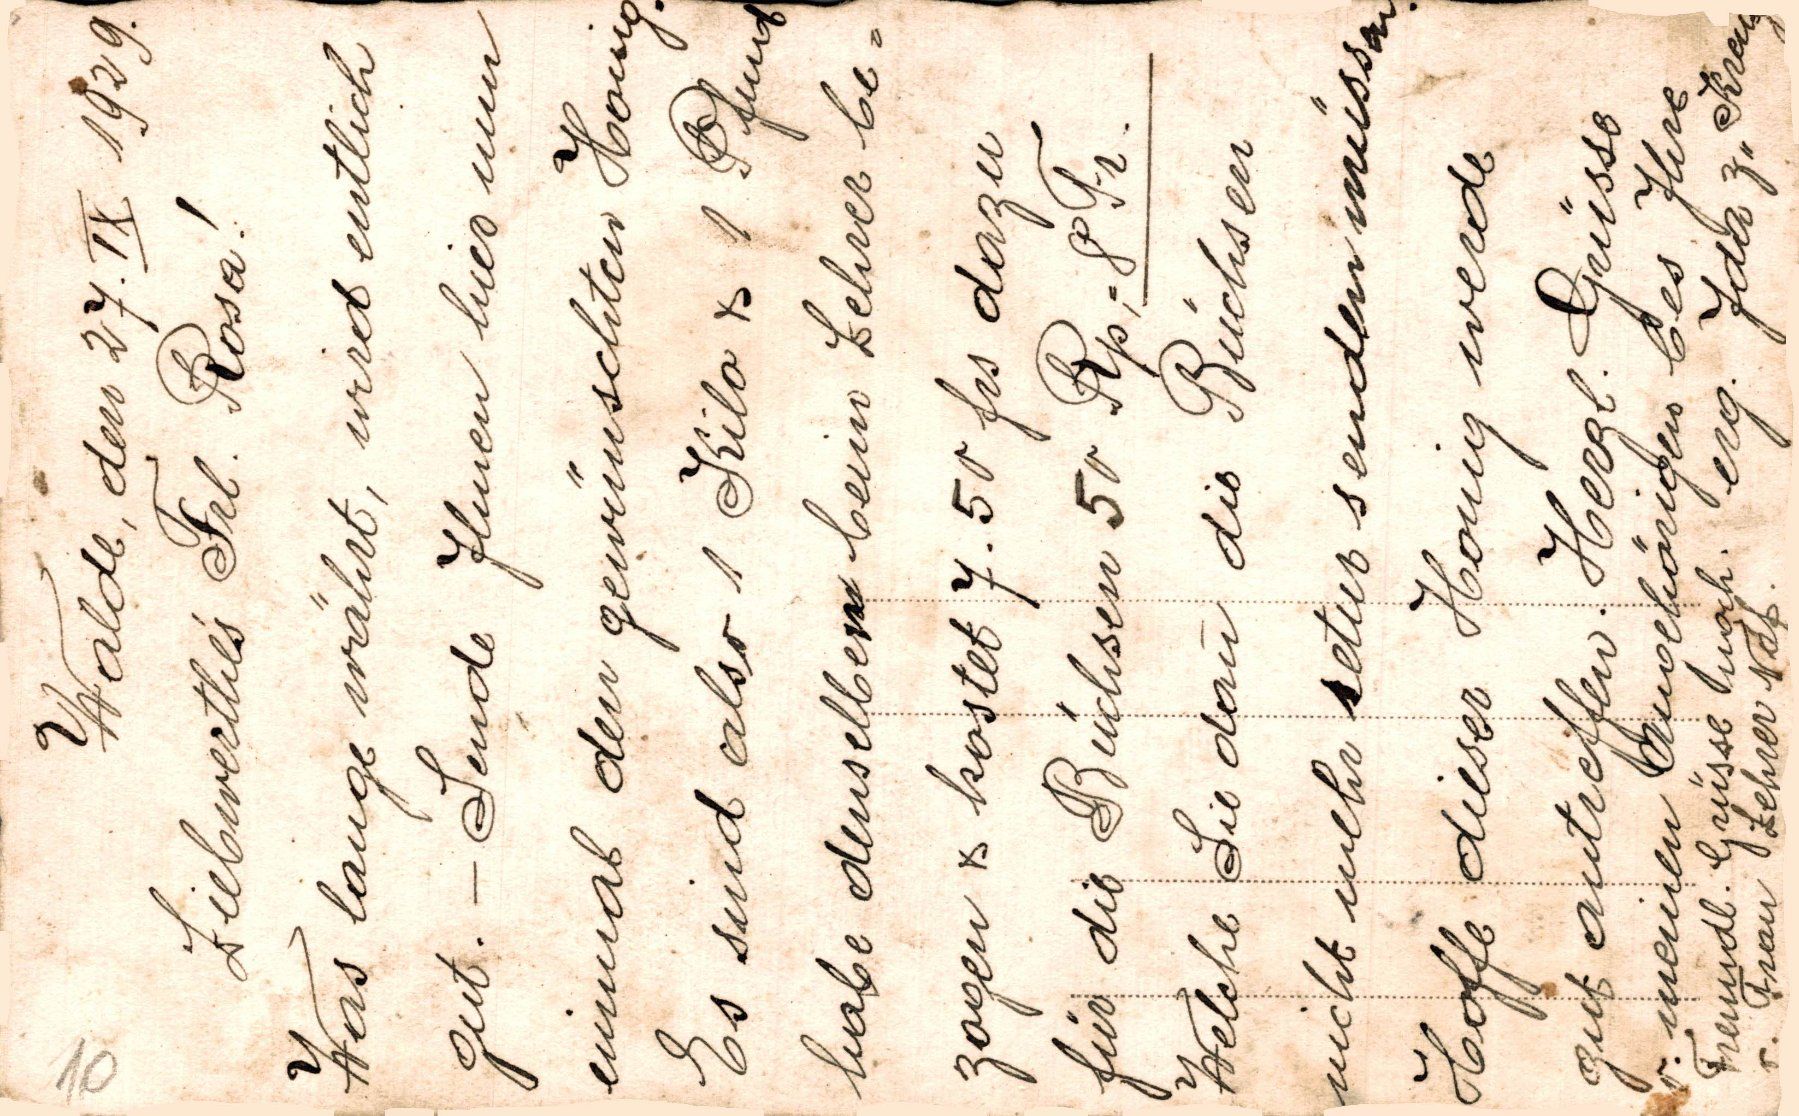 Walde, den 27. IX 1929.
Liebwerthes Frl. Rosa!
Was lange währt, wird entlich
gut. – Sende Ihnen hier nun
einmal den gewünschten Honig.
Es sind also 1 Kilo & 1 Pfund
habe denselben beim Lehrer be-
zogen & kostet 7.50 frs dazu
für die Büchsen 50 Rp, = 8 Fr.
Welche Sie dann die Büchsen
nicht mehr retur senden müssen.
Hoffe dieser Honig werde
gut antreffen. Herzl. Grüsse
v. meinen Angehörigen bes Ihre
erg. Ida z. "Kreuz
Freundl. Grüsse noch.
v. Frau Lehrer Näf.
10